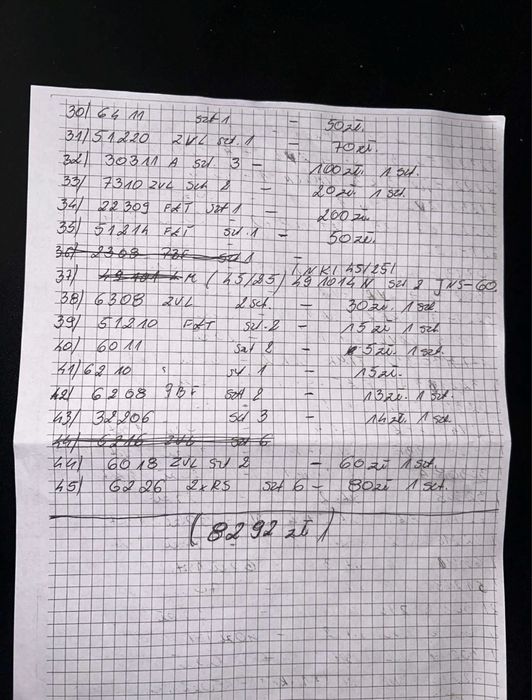 30/ 6411 szt 1 - 50 zł.
31/ 51220 ZVL szt. 1 - 70 zł.
32/ 30311 A szt 3 - 100 zł. 1 szt.
33/ 7310 ZVL szt 2 - 20 zł 1 szt.
34/ 22309 FŁT szt 1 - 200 zł.
35/ 51214 FŁT szt. 1 - 50 zł.
36/ 2308 szt 1 -
37/ M (45/25) / NKI 45/25/ 491014N szt 2 JNS-60
38/ 6308 ZVL 2 szt. - 30 zł. 1 szt.
39/ 51210 FŁT szt. 2 - 15 zł 1 szt.
40/ 6011 szt 2 - 5 zł. 1 szt.
41/ 6210 szt 1 - 15 zł.
42/ 6208 szt 2 - 13 zł. 1 szt.
43/ 32206 szt 3 - 14 zł. 1 szt.
44/ 6216 ZVL szt 6
44/ 6018 ZVL szt 2 - 60 zł 1 szt.
45/ 6226 2xRS szt 6 - 80 zł 1 szt.
(8292 zł)